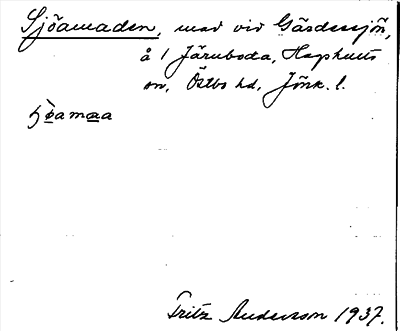 Sjöamaden, mad vid Gåsdessjön,
å 1 Järnboda, Haghults
sn, Östbo hd, Jönk. l.
ɧò̱amaa
Fritz Anderson 1937.